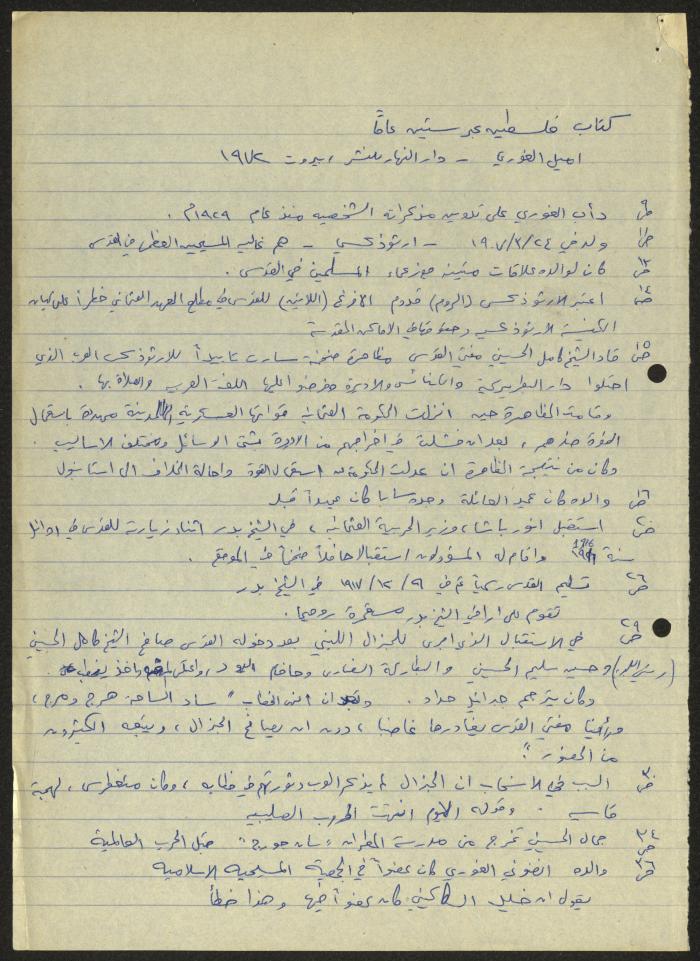 كتاب فلسطين عبر ستين عاماً
اميل الغوري - دار النهار للنشر، بيروت ١٩٧٢
ص ٩ دأب الغوري على تدوين مذكراته الشخصية منذ عام ١٩٢٩م.
ص ١١ ولد في ١٩٠٧/٣/٢٤ - ارثوذكسي - هم غالبية المسيحيين العظمى في القدس
ص ١٣ كان لوالده علاقات متينة مع زعماء المسلمين في القدس.
ص ١٤ اعتبر الارثوذكس (الروم) قدوم الافرنج (اللاتين) للقدس في مطلع العهد العثماني خطراً على كيان
الكنيسة الارثوذكسية وحقوقها في الاماكن المقدسة
ص ١٥ قاد الشيخ كامل الحسيني مفتي القدس مظاهرة ضخمة سارت تأييداً للارثوذكس العرب الذي
احتلوا دار البطريركية والكنائس والاديرة وفرضوا عليها اللغة العربية والصلاة بها.
وقامت المظاهرة حين انزلت الحكومة العثمانية قواتها العسكرية الى المدينة مهددة باستعمال
القوة ضدهم، بعد ان فشلت في اخراجهم من الاديرة بشتى الوسائل ومختلف الاساليب.
وكان من نتيجة المظاهرة ان عدلت الحكومة عن استعمال القوة واحالة الخلاف الى استانبول
ص ١٦ والده كان عميد العائلة وجده سابا كان عميداً قبله
ص ٢٠ استقبل انور باشا، وزير الحربية العثمانية، في الشيخ بدر اثناء زيارته للقدس في اوائل
سنة ١٩١٦ واقام له المسؤولون استقبالا حافلاً ضخماً في الموقع.
ص ٢٦ تسليم القدس رسمياً تم في ٩/١٢/١٩١٧ في الشيخ بدر
تقوم على اراضي الشيخ بدر مستعمرة روميما.
ص ٢٩ في الاستقبال الذي اجرى للجنرال اللنبي بعد دخوله القدس صافح الشيخ كامل الحسيني
(رئيس البلدية) وحسين سليم الحسيني والبطاركة النصارى وحاخام اليهود، واعتلى المنصة واخذ يخطب
وكان يترجم جدائيل حداد. وبعد ان انهى الخطاب "ساد الساحة هرج ومرج،
ورأينا مفتي القدس يغادرها غاضباً، دون ان يصافح الجنرال، ويتبعه الكثيرون
من الحضور".
ص ٣٠ السبب في الانسحاب ان الجنرال لم يذكر العرب وثورتهم في خطابه، وكان متغطرس، لهجة
قاسية. وقوله اليوم انتهت الحروب الصليبية
ص ٣٤ جمال الحسيني تخرج من مدرسة المطران "سان جورج" قبل الحرب العالمية
ص ٣٦ والده انطوني الغوري كان عضواً في الجمعية المسيحية الاسلامية
يقول ان خليل السكاكيني كان عضواً فيها وهذا خطأ